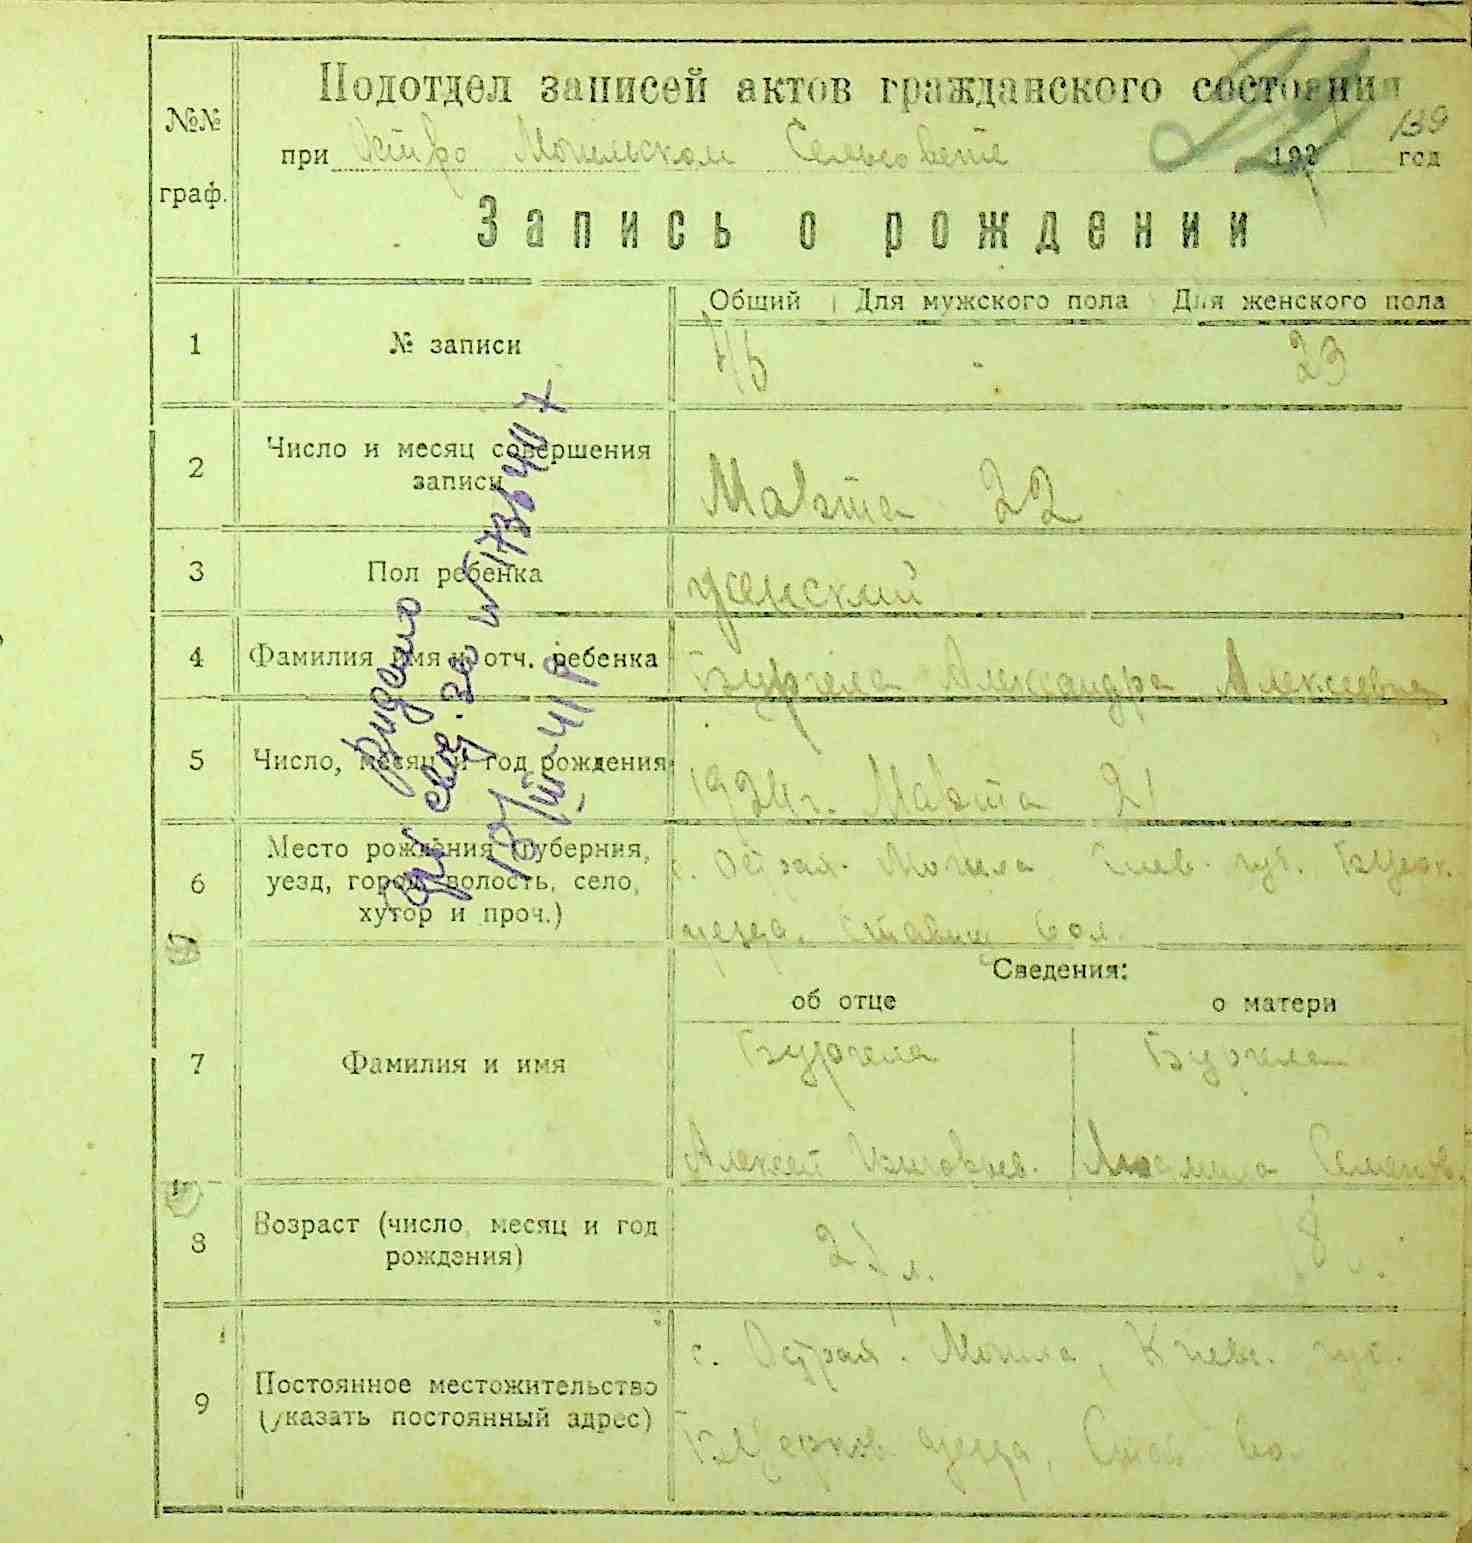 Подотдел записей актов гражданского состояния
139
при Остро Могильском Сельсовете 192 год
№№ граф.
Запись о рождении
Общий Для мужского пола Для женского пола
1 № записи 46 - 23
2 Число и месяц совершения
записи Марта 22
3 Пол ребенка женский
4 Фамилия имя и отч. ребенка Бургела Александра Алексеевна
5 Число, месяц и год рождения 1924 г. Марта 21
6 Место рождения (губерния,
уезд, город, волость, село,
хутор и проч.)
с. Острая Могила Киев. губ. Бцерк.
уезда, Ставищ вол.
Сведения:
об отце о матери
7 Фамилия и имя
Бургела Бургела
Алексей Людмила Семенов.
8 Возраст (число, месяц и год
рождения)
л.
9 Постоянное местожительство
(указать постоянный адрес)
с. Острая Могила, Киев. губ.
Бцерков уезда, Став во.
видано
свид. за № 1736407